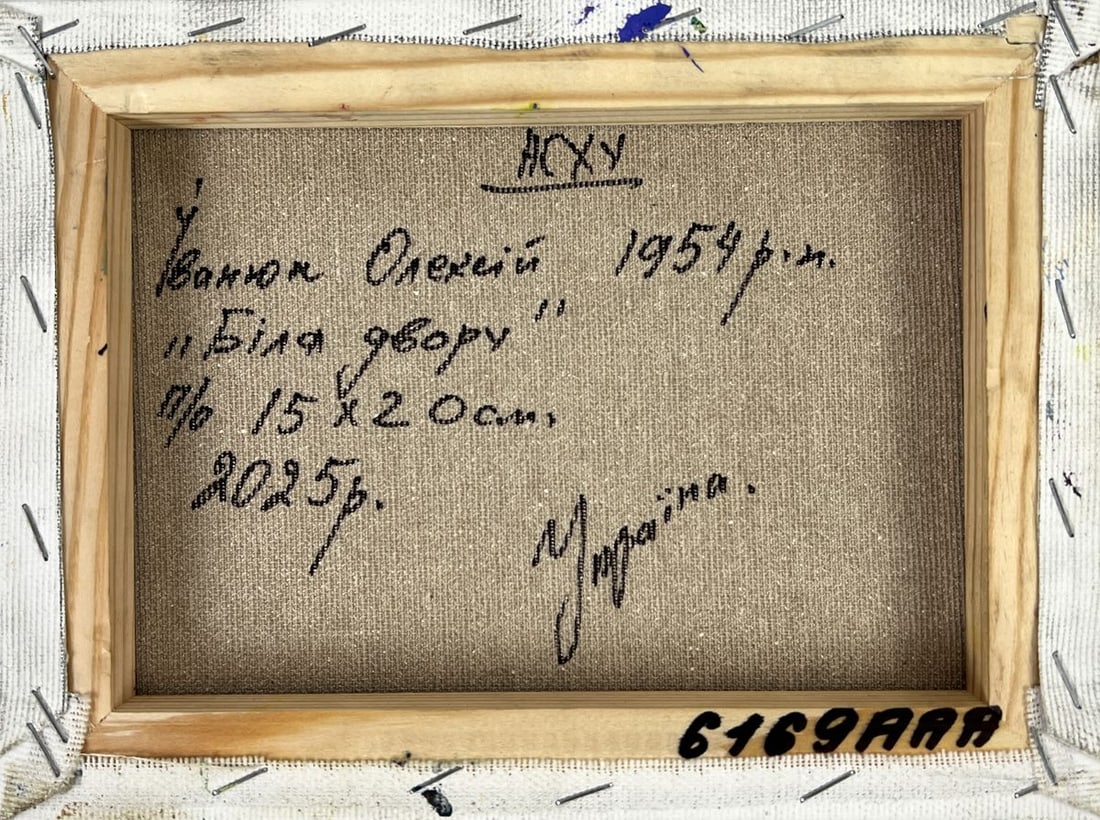 НСХУ
Іванюк Олексій 1954 р.н.
"Біля двору"
п/о 15 х 20 см.
2025р.
Україна.
6169AAA